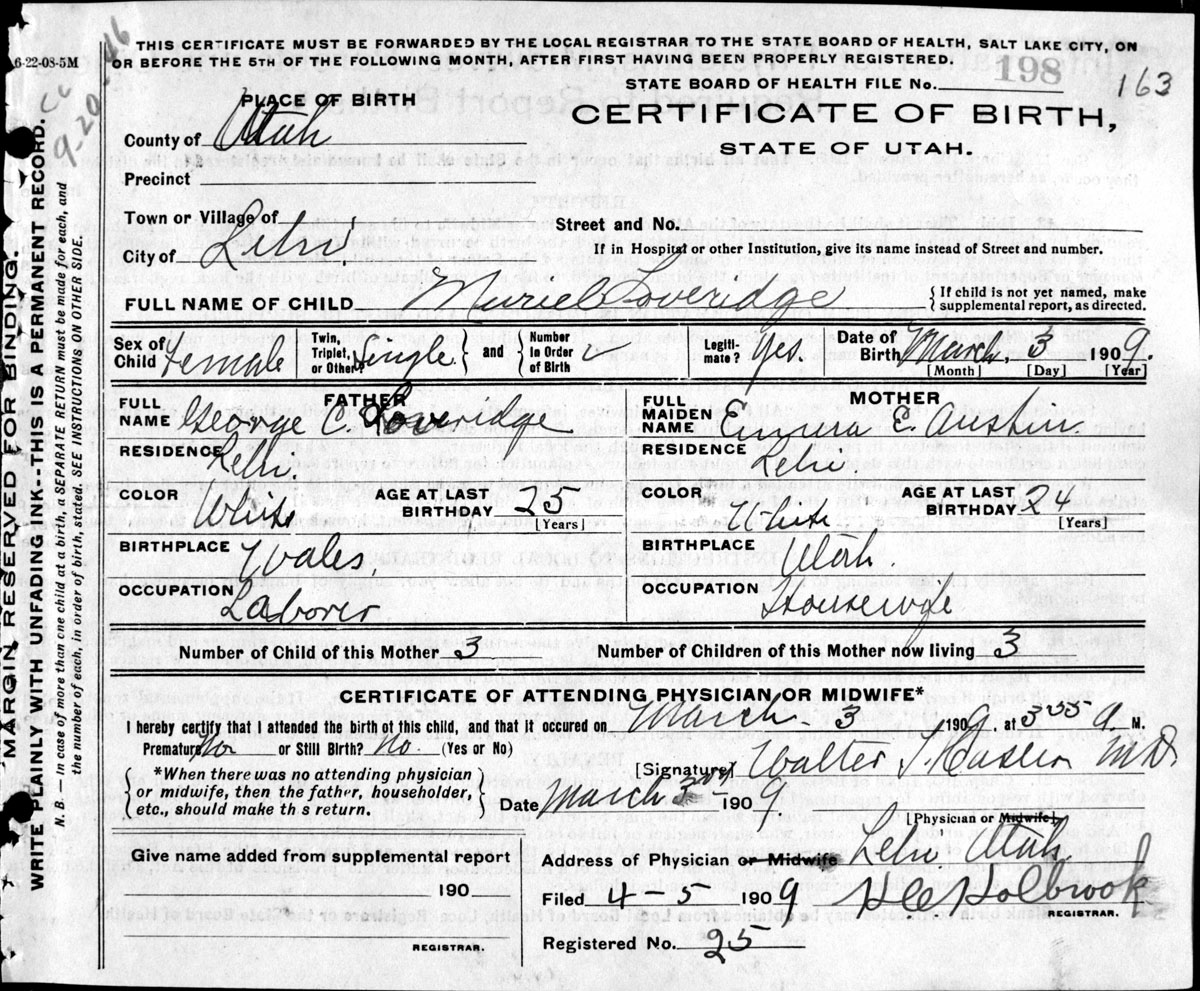 6-22-08-5M
THIS CERTIFICATE MUST BE FORWARDED BY THE LOCAL REGISTRAR TO THE STATE BOARD OF HEALTH, SALT LAKE CITY, ON
OR BEFORE THE 5TH OF THE FOLLOWING MONTH, AFTER FIRST HAVING BEEN PROPERLY REGISTERED.
STATE BOARD OF HEALTH FILE No. 198 163
9-20-46
PLACE OF BIRTH
CERTIFICATE OF BIRTH,
STATE OF UTAH.
County of Utah
Precinct
Town or Village of
Street and No.
City of Lehi
If in Hospital or other Institution, give its name instead of Street and number.
FULL NAME OF CHILD Muriel Loveridge {If child is not yet named, make
supplemental report, as directed.
Sex of Child Female Twin, Triplet, or Other? Single } and { Number in Order of Birth Legiti-mate? Yes. Date of Birth March. 3 1909.
[Month] [Day] [Year]
FATHER
FULL NAME George C. Loveridge.
RESIDENCE Lehi
COLOR White AGE AT LAST BIRTHDAY 25 [Years]
BIRTHPLACE Wales,
OCCUPATION Laborer
MOTHER
FULL MAIDEN NAME Emma E. Austin.
RESIDENCE Lehi
COLOR White AGE AT LAST BIRTHDAY 24 [Years]
BIRTHPLACE Utah.
OCCUPATION Housewife
Number of Child of this Mother 3 Number of Children of this Mother now living 3
CERTIFICATE OF ATTENDING PHYSICIAN OR MIDWIFE*
I hereby certify that I attended the birth of this child, and that it occurred on March. 3, 1909, at 355 a. M.
Premature? No or Still Birth? No. (Yes or No)
{*When there was no attending physician
or midwife, then the father, householder,
etc., should make th s return.}
[Signature] Walter T. Hasler MD.
Date March 3rd 1909
[Physician or Midwife]
Give name added from supplemental report
190
REGISTRAR.
Address of Physician or Midwife Lehi Utah.
Filed 4-5 1909 Holbrook
REGISTRAR.
Registered No. 25
MARGIN RESERVED FOR BINDING.
WRITE PLAINLY WITH UNFADING INK--THIS IS A PERMANENT RECORD.
N. B. — In case of more than one child at a birth, a SEPARATE RETURN must be made for each, and
the number of each, in order of birth, stated. SEE INSTRUCTIONS ON OTHER SIDE.